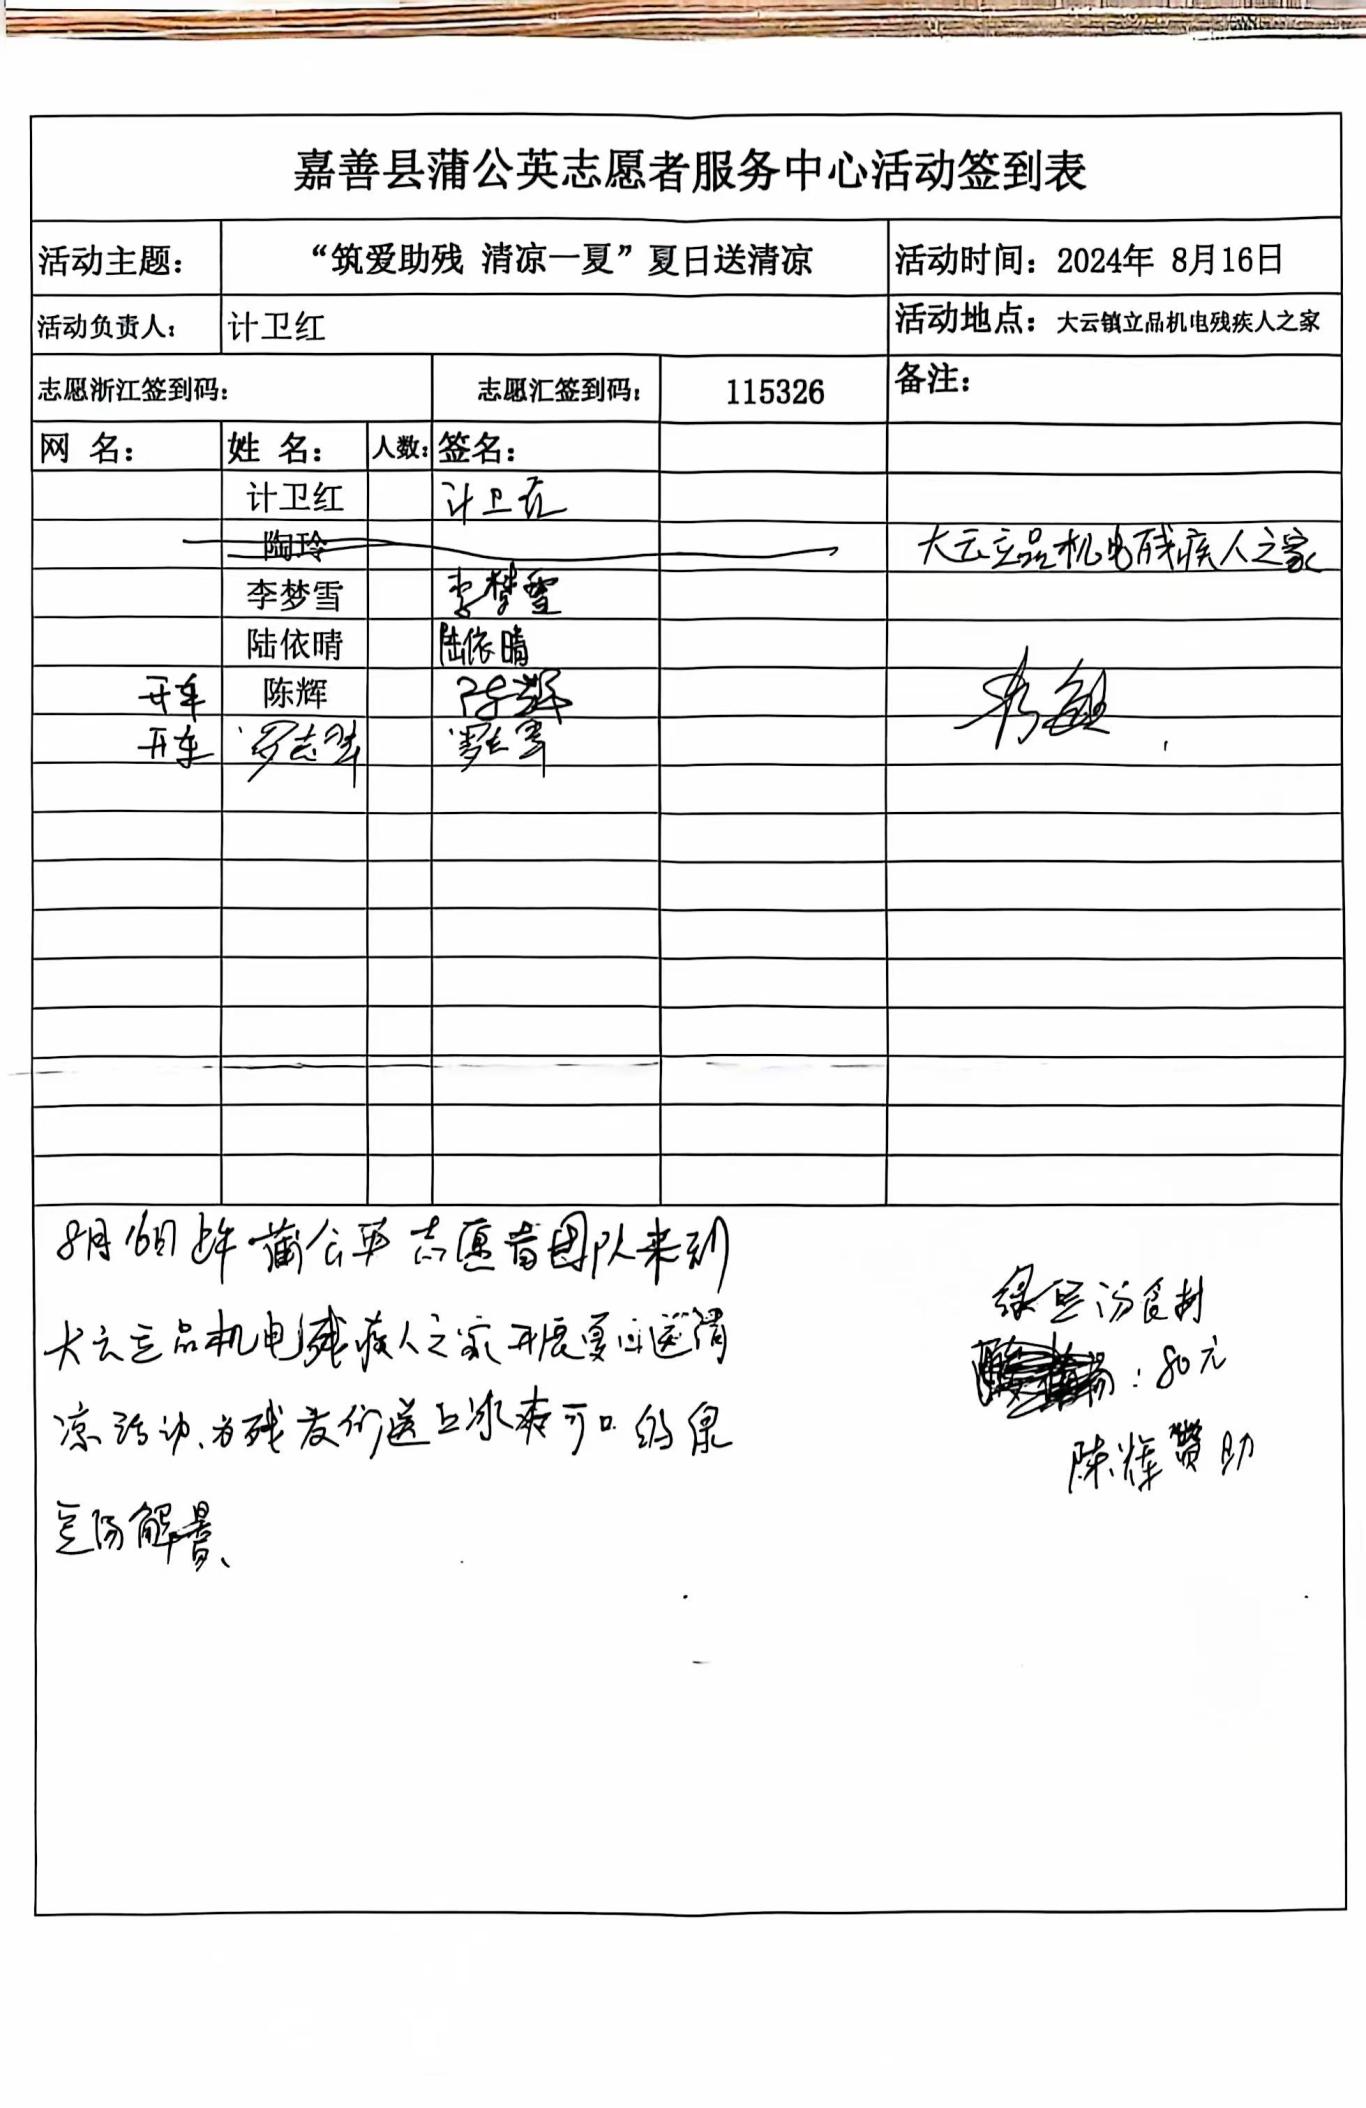 嘉善县蒲公英志愿者服务中心活动签到表
活动主题： “筑爱助残 清凉一夏”夏日送清凉 活动时间：2024年 8月16日
活动负责人： 计卫红 活动地点：大云镇立品机电残疾人之家
志愿浙江签到码： 志愿汇签到码： 115326 备注：
网 名： 姓 名： 人数： 签名：
计卫红 计卫红
陶玲
大云立品机电残疾人之家
李梦雪 李梦雪
陆依晴 陆依晴
开车 陈辉 陈辉
开车 罗志军 罗志军
8月16日上午蒲公英志愿者团队来到
大云立品机电残疾人之家开展夏日送清
凉活动、为残友们送上冰爽可口的绿
豆汤解暑、
绿豆汤食材
：80元
陈辉赞助